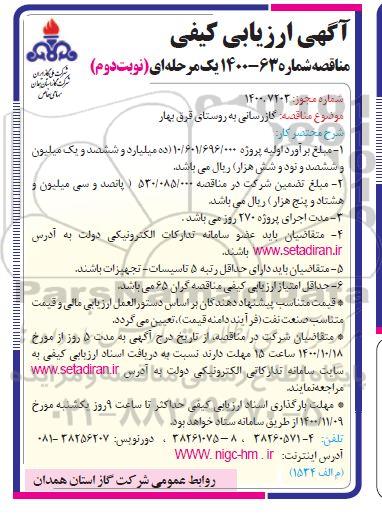 آگهی ارزیابی کیفی
مناقصه شماره ۶۳-۱۴۰۰ یک مرحله‌ای (نوبت دوم)
شرکت ملی گاز ایران
شرکت گاز استان همدان
سهامی خاص
شماره مجوز: ۱۴۰۰.۷۲۰۳
موضوع مناقصه: گازرسانی به روستای قرق بهار
شرح مختصر کار:
۱- مبلغ برآورد اولیه پروژه ۱۰/۶۰۱/۶۹۶/۰۰۰ (ده میلیارد و ششصد و یک میلیون
و ششصد و نود و شش هزار) ریال می باشد.
۲- مبلغ تضمین شرکت در مناقصه ۵۳۰/۰۸۵/۰۰۰ ( پانصد و سی میلیون و
هشتاد و پنج هزار) ریال می باشد.
۳- مدت اجرای پروژه ۲۷۰ روز می باشد .
۴- متقاضیان باید عضو سامانه تدارکات الکترونیکی دولت به آدرس
www.setadiran.ir باشند.
۵- متقاضیان باید دارای حداقل رتبه ۵ تاسیسات- تجهیزات باشند.
۶- حداقل امتیاز ارزیابی کیفی مناقصه گران ۶۵ می باشد.
* قیمت متناسب پیشنهاد دهندگان بر اساس دستورالعمل ارزیابی مالی و قیمت
متناسب صنعت نفت (فرآیند دامنه قیمت)، تعیین می گردد.
* متقاضیان شرکت در مناقصه، از تاریخ درج آگهی به مدت ۵ روز از مورخ
۱۴۰۰/۱۰/۱۸ ساعت ۱۵ مهلت دارند نسبت به دریافت اسناد ارزیابی کیفی به
سایت سامانه تدارکاتی الکترونیکی دولت به آدرس www.setadiran.ir
مراجعه نمایند.
* مهلت بارگذاری اسناد ارزیابی کیفی حداکثر تا ساعت ۹ روز یکشنبه مورخ
۱۴۰۰/۱۱/۰۹ از طریق سامانه ستاد خواهد بود.
تلفن: ۴-۳۸۲۶۰۵۷۱ ، ۸-۳۸۲۶۱۰۷۵ ، دورنویس: ۳۸۲۵۶۲۰۷-۰۸۱
آدرس اینترنت: WWW. nigc-hm . ir
(م الف ۱۵۳۴)
روابط عمومی شرکت گاز استان همدان